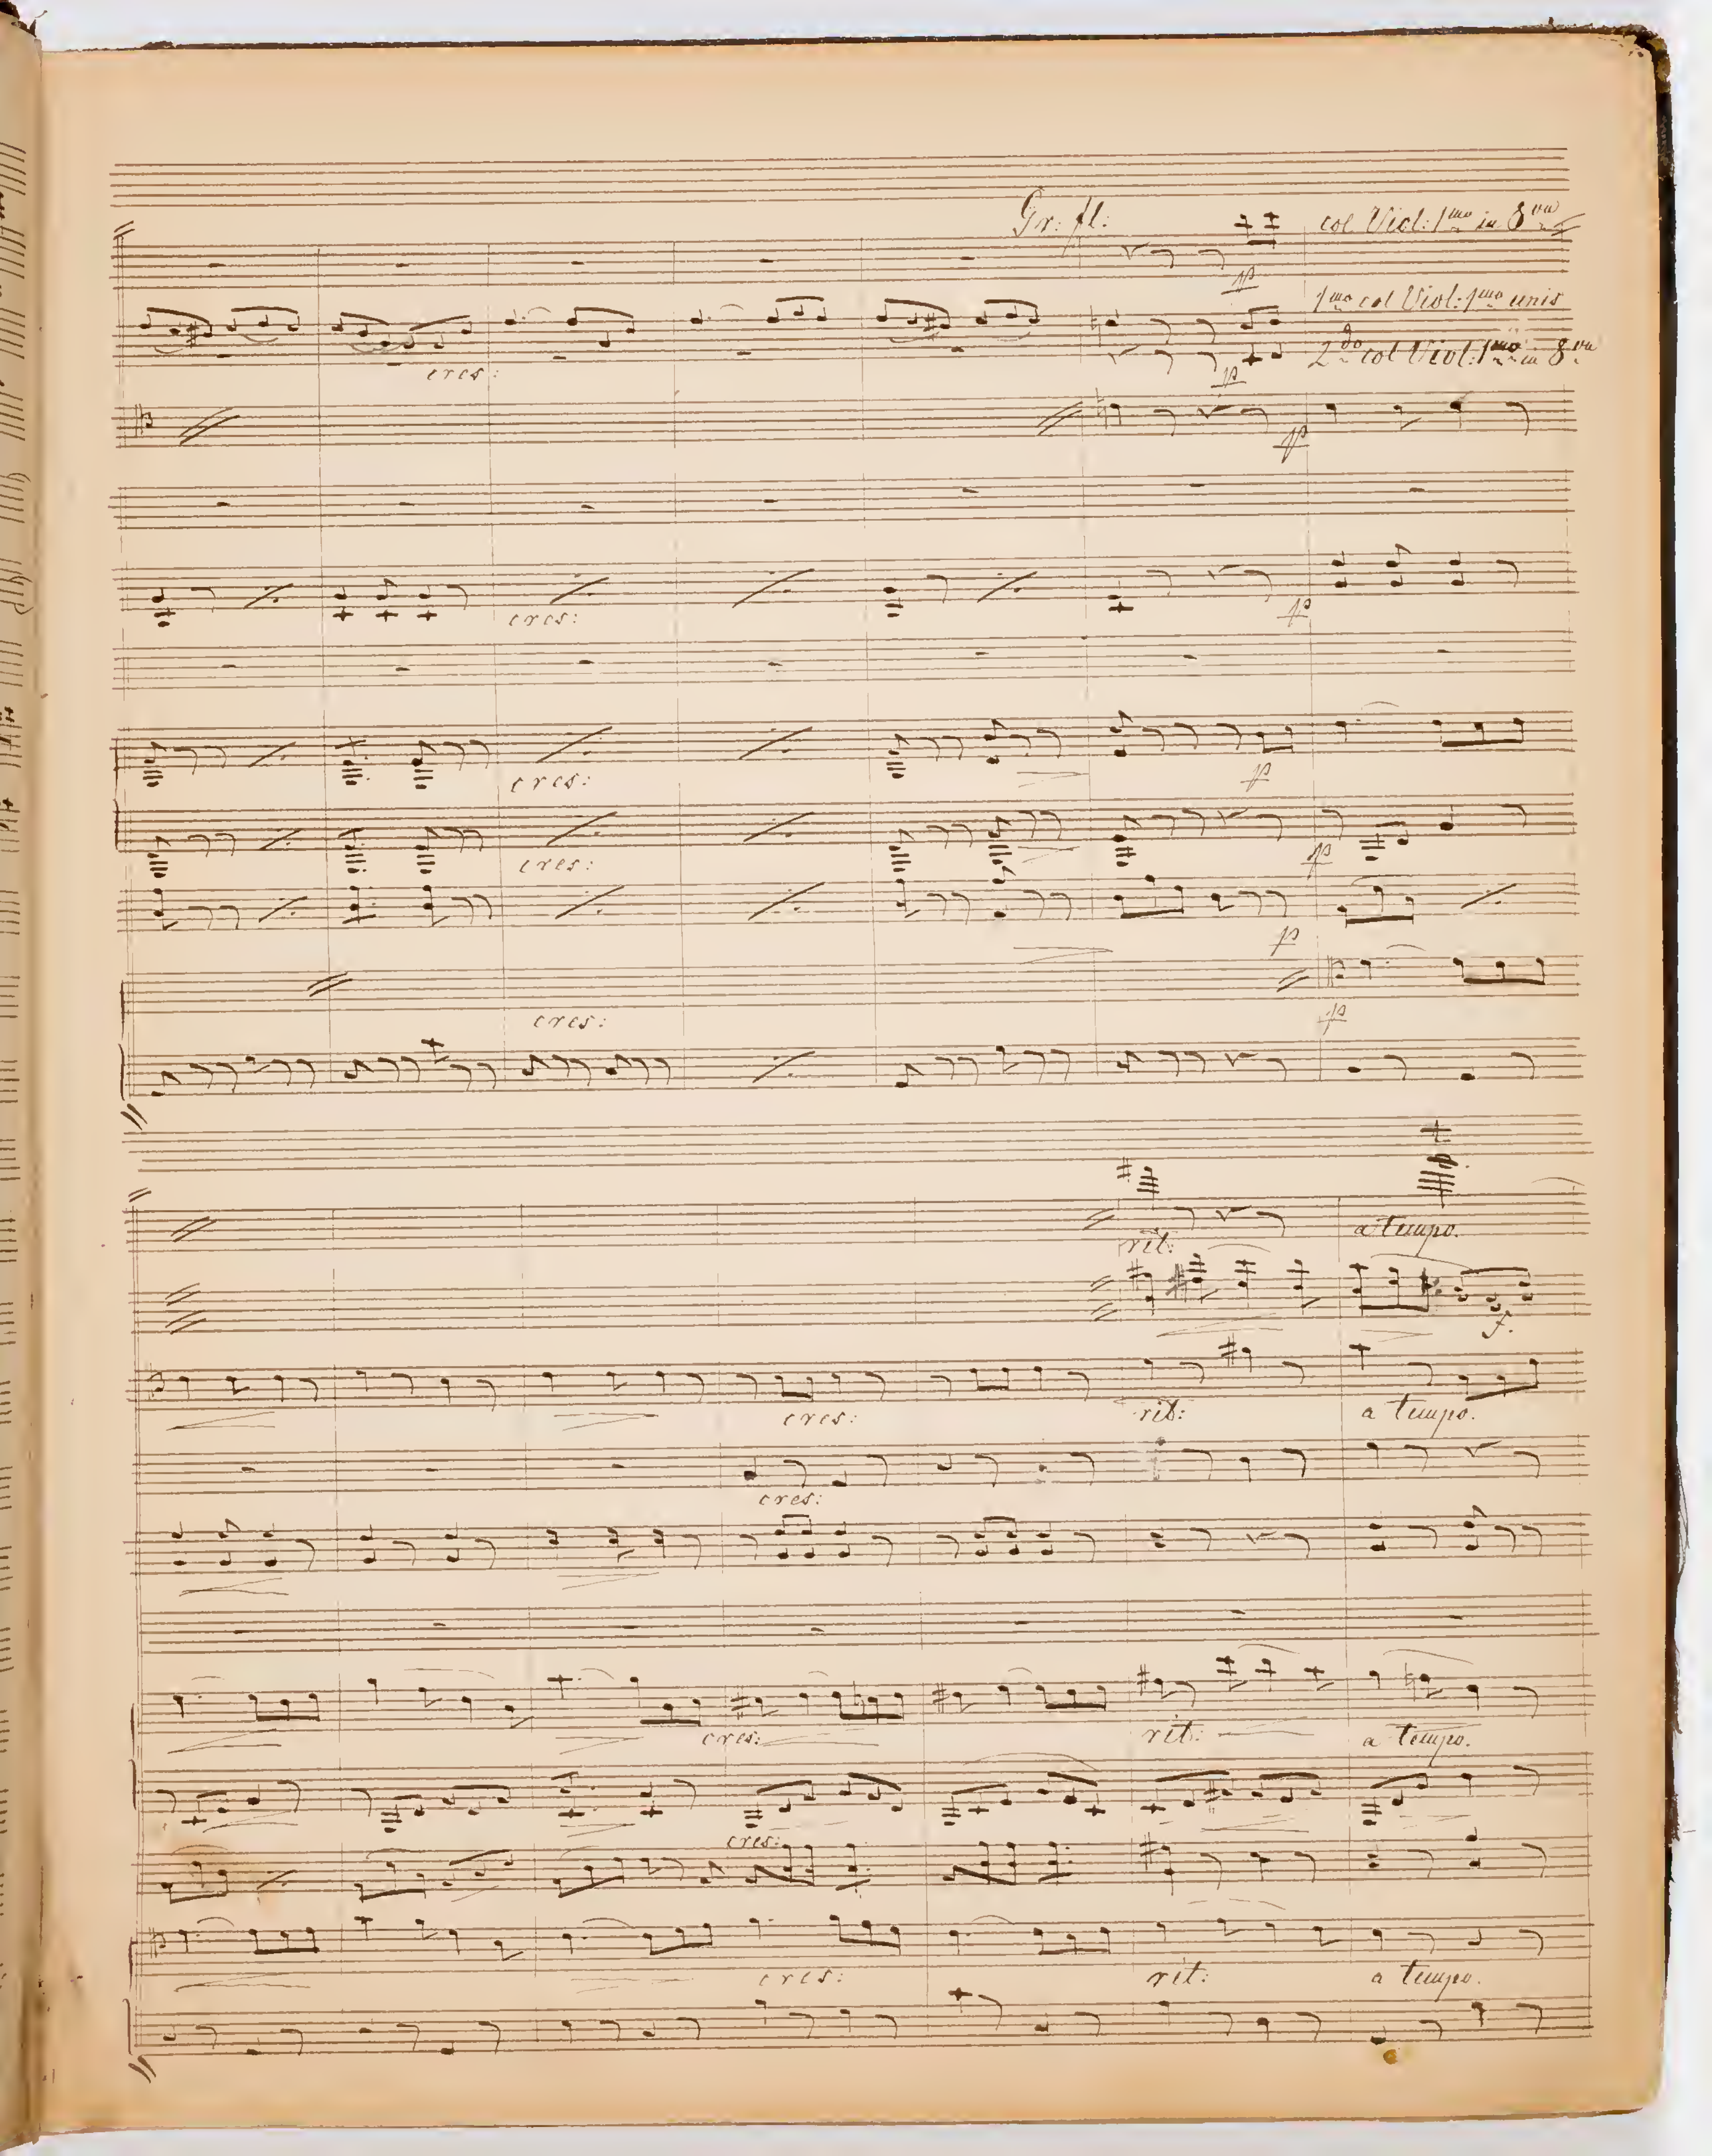 Gr: fl: col Viol: 1mo in 8va
p
1mo col Viol: 1mo unis
2do col Viol: 1mo in 8va
cres: p
p
cres: p
cres: p
cres: p
p
cres: p
rit: a tempo.
f.
cres: rit: a tempo.
cres:
cres: rit: a tempo.
cres:
cres: rit: a tempo.